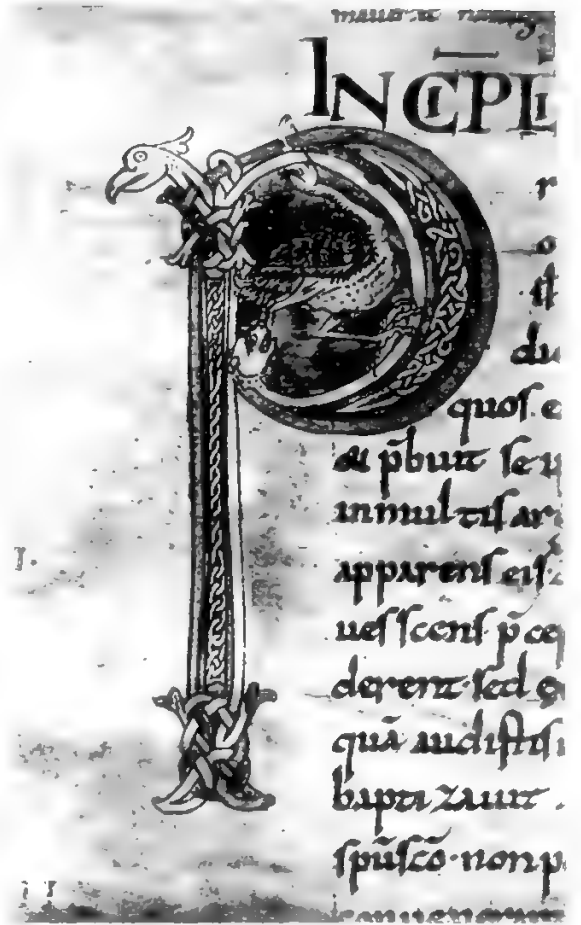 INCIP LI
P
r
o
st
du
quos. e
et p̄buit se u
inmultis ar
apparens eis.
uescens p̄ cep
derent. sed e
quā audistis
baptizauit
sp̄usc̄o. non p
conuenerant